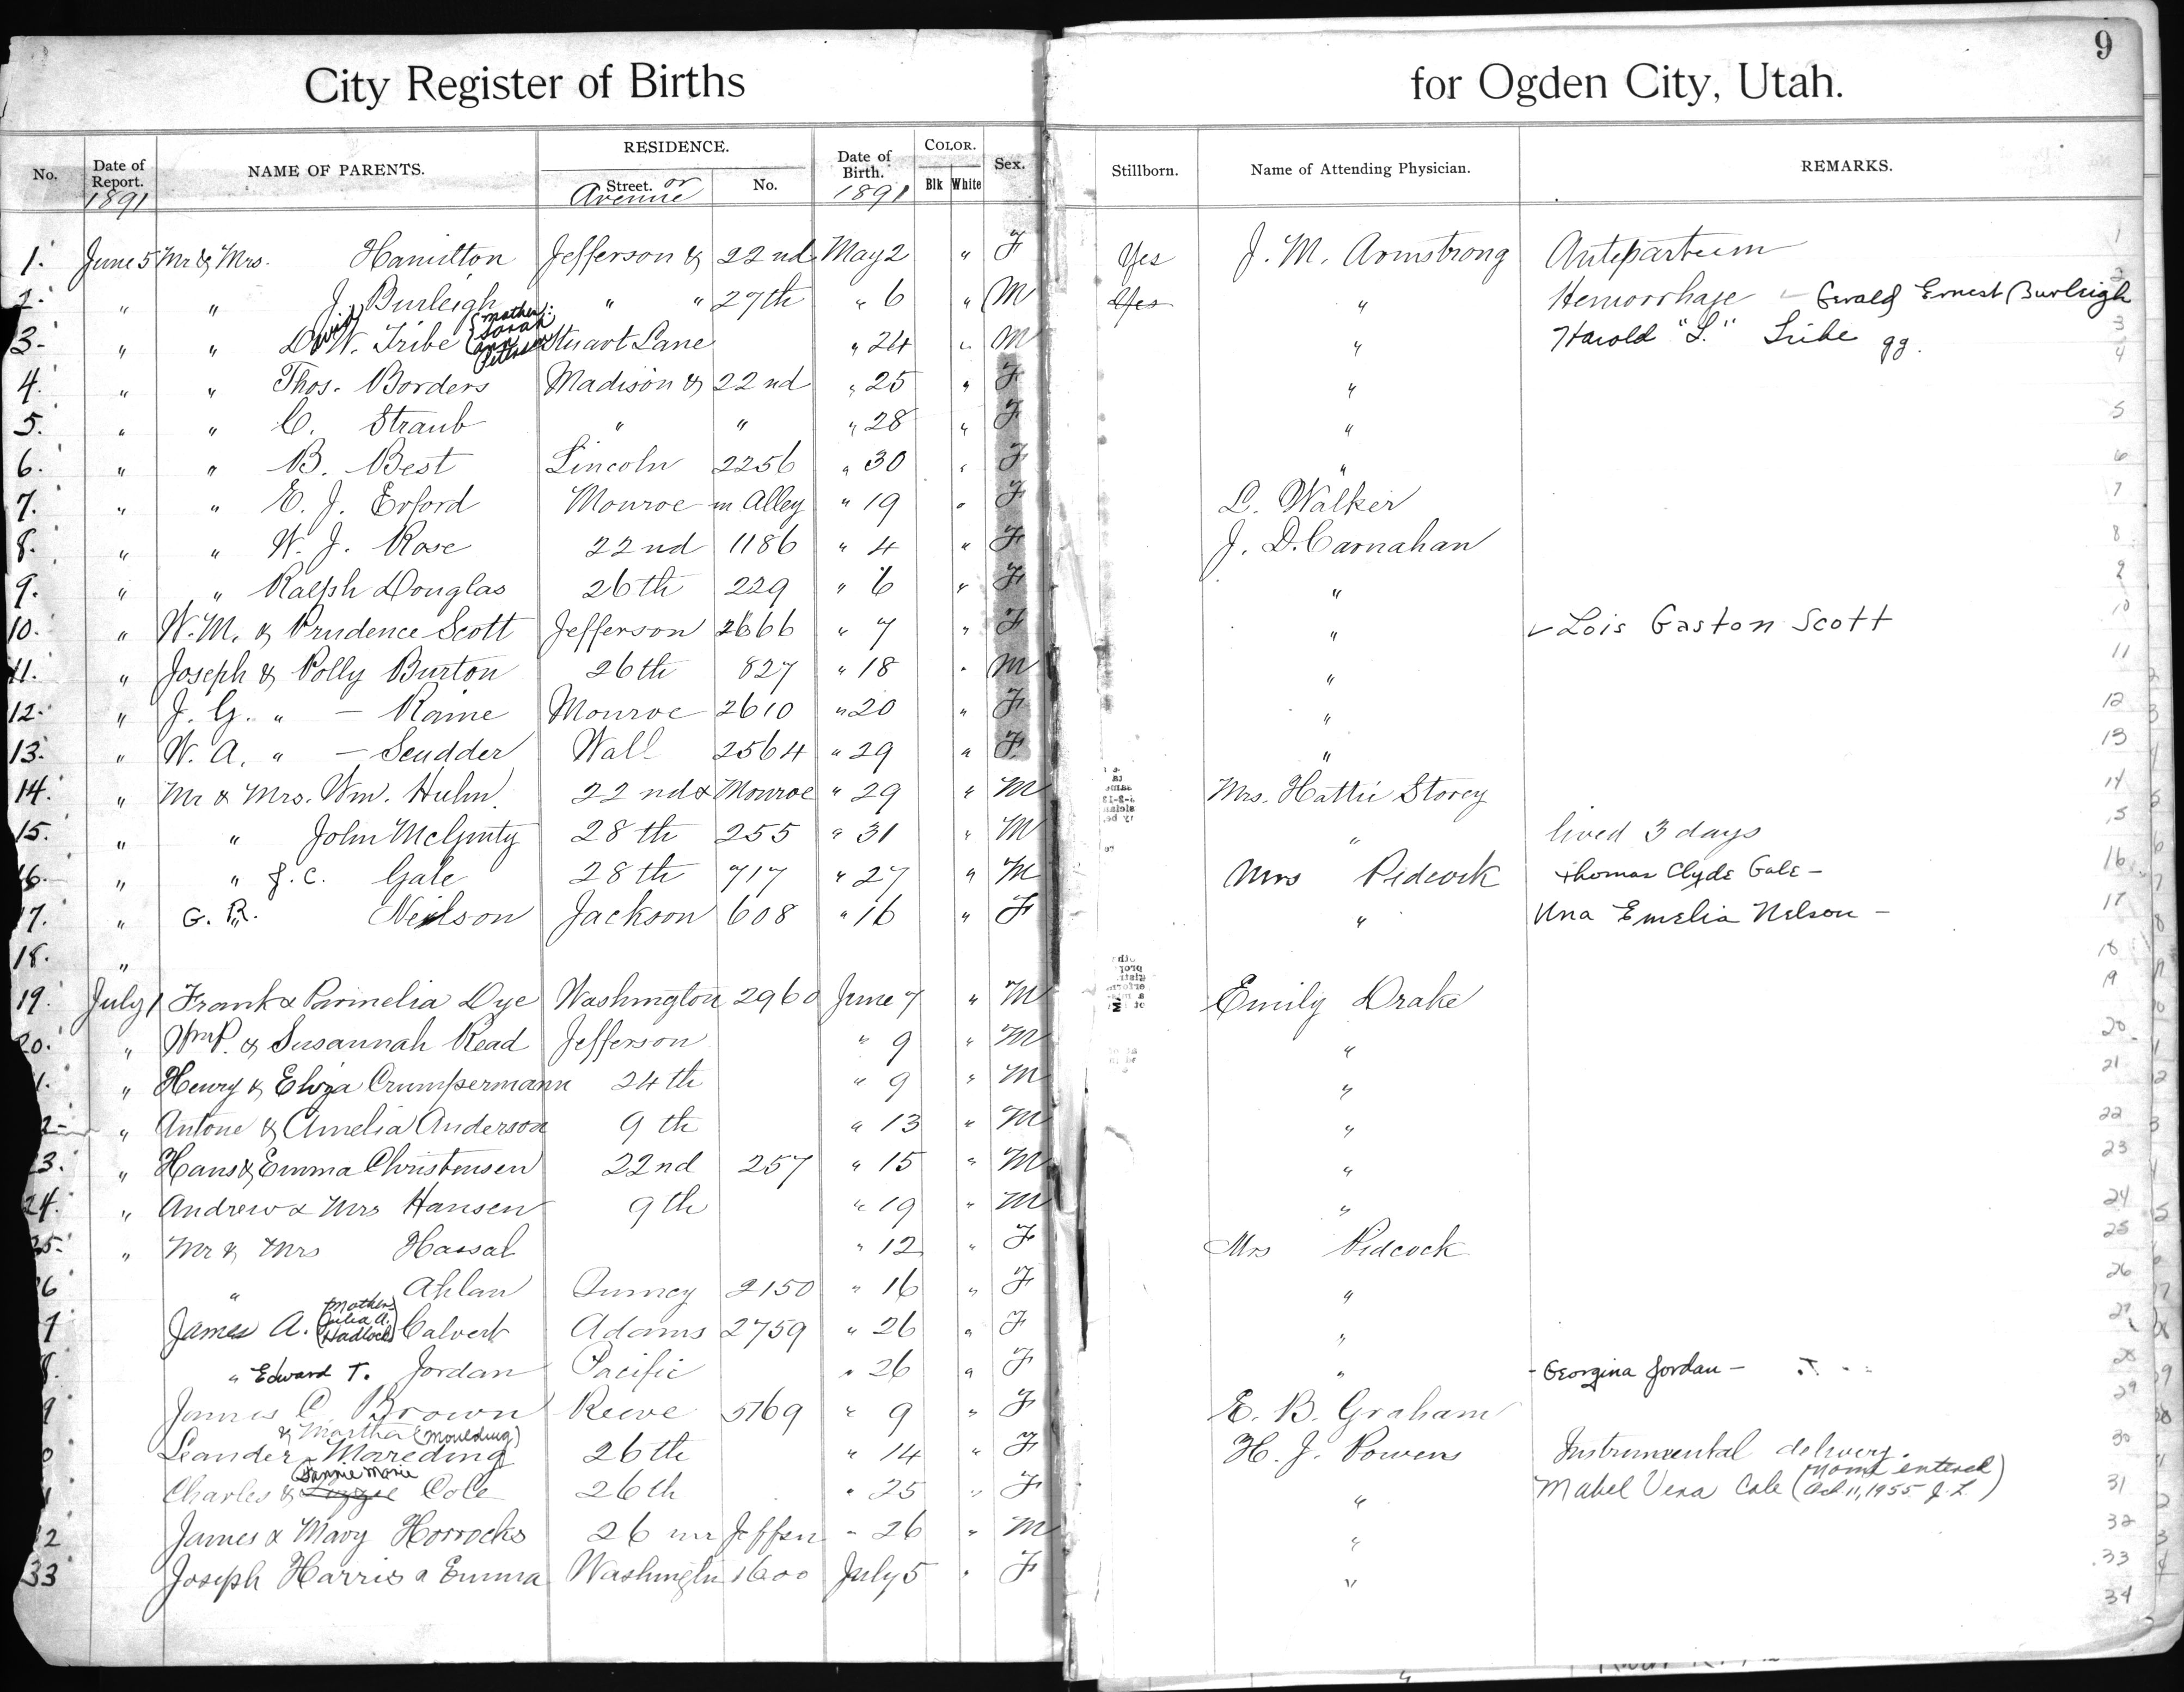 City Register of Births for Ogden City, Utah. 9
No. Date of Report. NAME OF PARENTS. RESIDENCE. Street. or Avenue No. Date of Birth. COLOR. Blk White Sex. Stillborn. Name of Attending Physician. REMARKS.
1891 1891
1. June 5 Mr & Mrs. Hamilton Jefferson & 22nd May 2 " F Yes J. M. Armstrong Antepartum 1
2. " " J. Burleigh " " 27th " 6 " M Yes " Hemorrhage Ernest Burleigh 2
3. " " David W. Tribe (Mother: Sarah Ann Peterson Stuart Lane " 24 " M " Harold "L." Tribe gg. 3
4. " " Thos. Borders Madison & 22nd " 25 " F " 4
5. " " C. Straub " " " 28 " F " 5
6. " " B. Best Lincoln 2256 " 30 " F " 6
7. " " E. J. Erford Monroe in Alley " 19 " F L. Walker 7
8. " " W. J. Rose 22nd 1186 " 4 " F J. D. Carnahan 8
9. " " Ralph Douglas 26th 229 " 6 " F " 9
10. " W. M. & Prudence Scott Jefferson 2666 " 7 " F " ✓ Lois Gaston Scott 10
11. " Joseph & Polly Burton 26th 827 " 18 " M " 11
12. " J. G. " — Raine Monroe 2610 " 20 " F " 12
13. " W. A. " — Scudder Wall 2564 " 29 " F " 13
14. " Mr & Mrs. Wm. Huhn 22nd & Monroe " 29 " M Mrs. Hattie Storey 14
15. " " John McGinty 28th 255 " 31 " M " lived 3 days 15
16. " " J. C. Gale 28th 717 " 27 " M Mrs Pidcock Thomas Clyde Gale — 16
17. " G. R. " Neilson Jackson 608 " 16 " F " Una Emelia Nelson — 17
18. " 18
19. July 1 Frank & Parmelia Dye Washington 2960 June 7 " M Emily Drake 19
20. " Wm P. & Susannah Read Jefferson " 9 " M " 20
1. " Henry & Eliza Crumpermann 24th " 9 " M " 21
2 " Antone & Amelia Anderson 9th " 13 " M " 22
3. " Hans & Emma Christensen 22nd 257 " 15 " M " 23
24. " Andrew & Mrs Hansen 9th " 19 " M " 24
25. " Mr & Mrs Hassal " 12 " F Mrs Pidcock 25
6 " Ahlan Quincy 2150 " 16 " F " 26
7 James A. (Mother Julia A. Hadlock) Calvert Adams 2759 " 26 " F " 27
8. " Edward T. Jordan Pacific " 26 " F " - Georgina Jordan — 28
9 James C. Brown Reeve 5169 " 9 " F E. B. Graham 29
0 Leander & Martha (Moulding) Mareding 26th " 14 " F H. J. Powers Instrumental delivery. 30
1 Charles & Lizzie (Fannie Marie Cole 26th " 25 " F " Mabel Vera Cole (Name entered Oct 11, 1955 J. L.) 31
32 James & Mary Horrocks 26 nr Jeffsn " 26 " M " 32
33 Joseph Harris & Emma Washingtn 1600 July 5 " F " 33
34